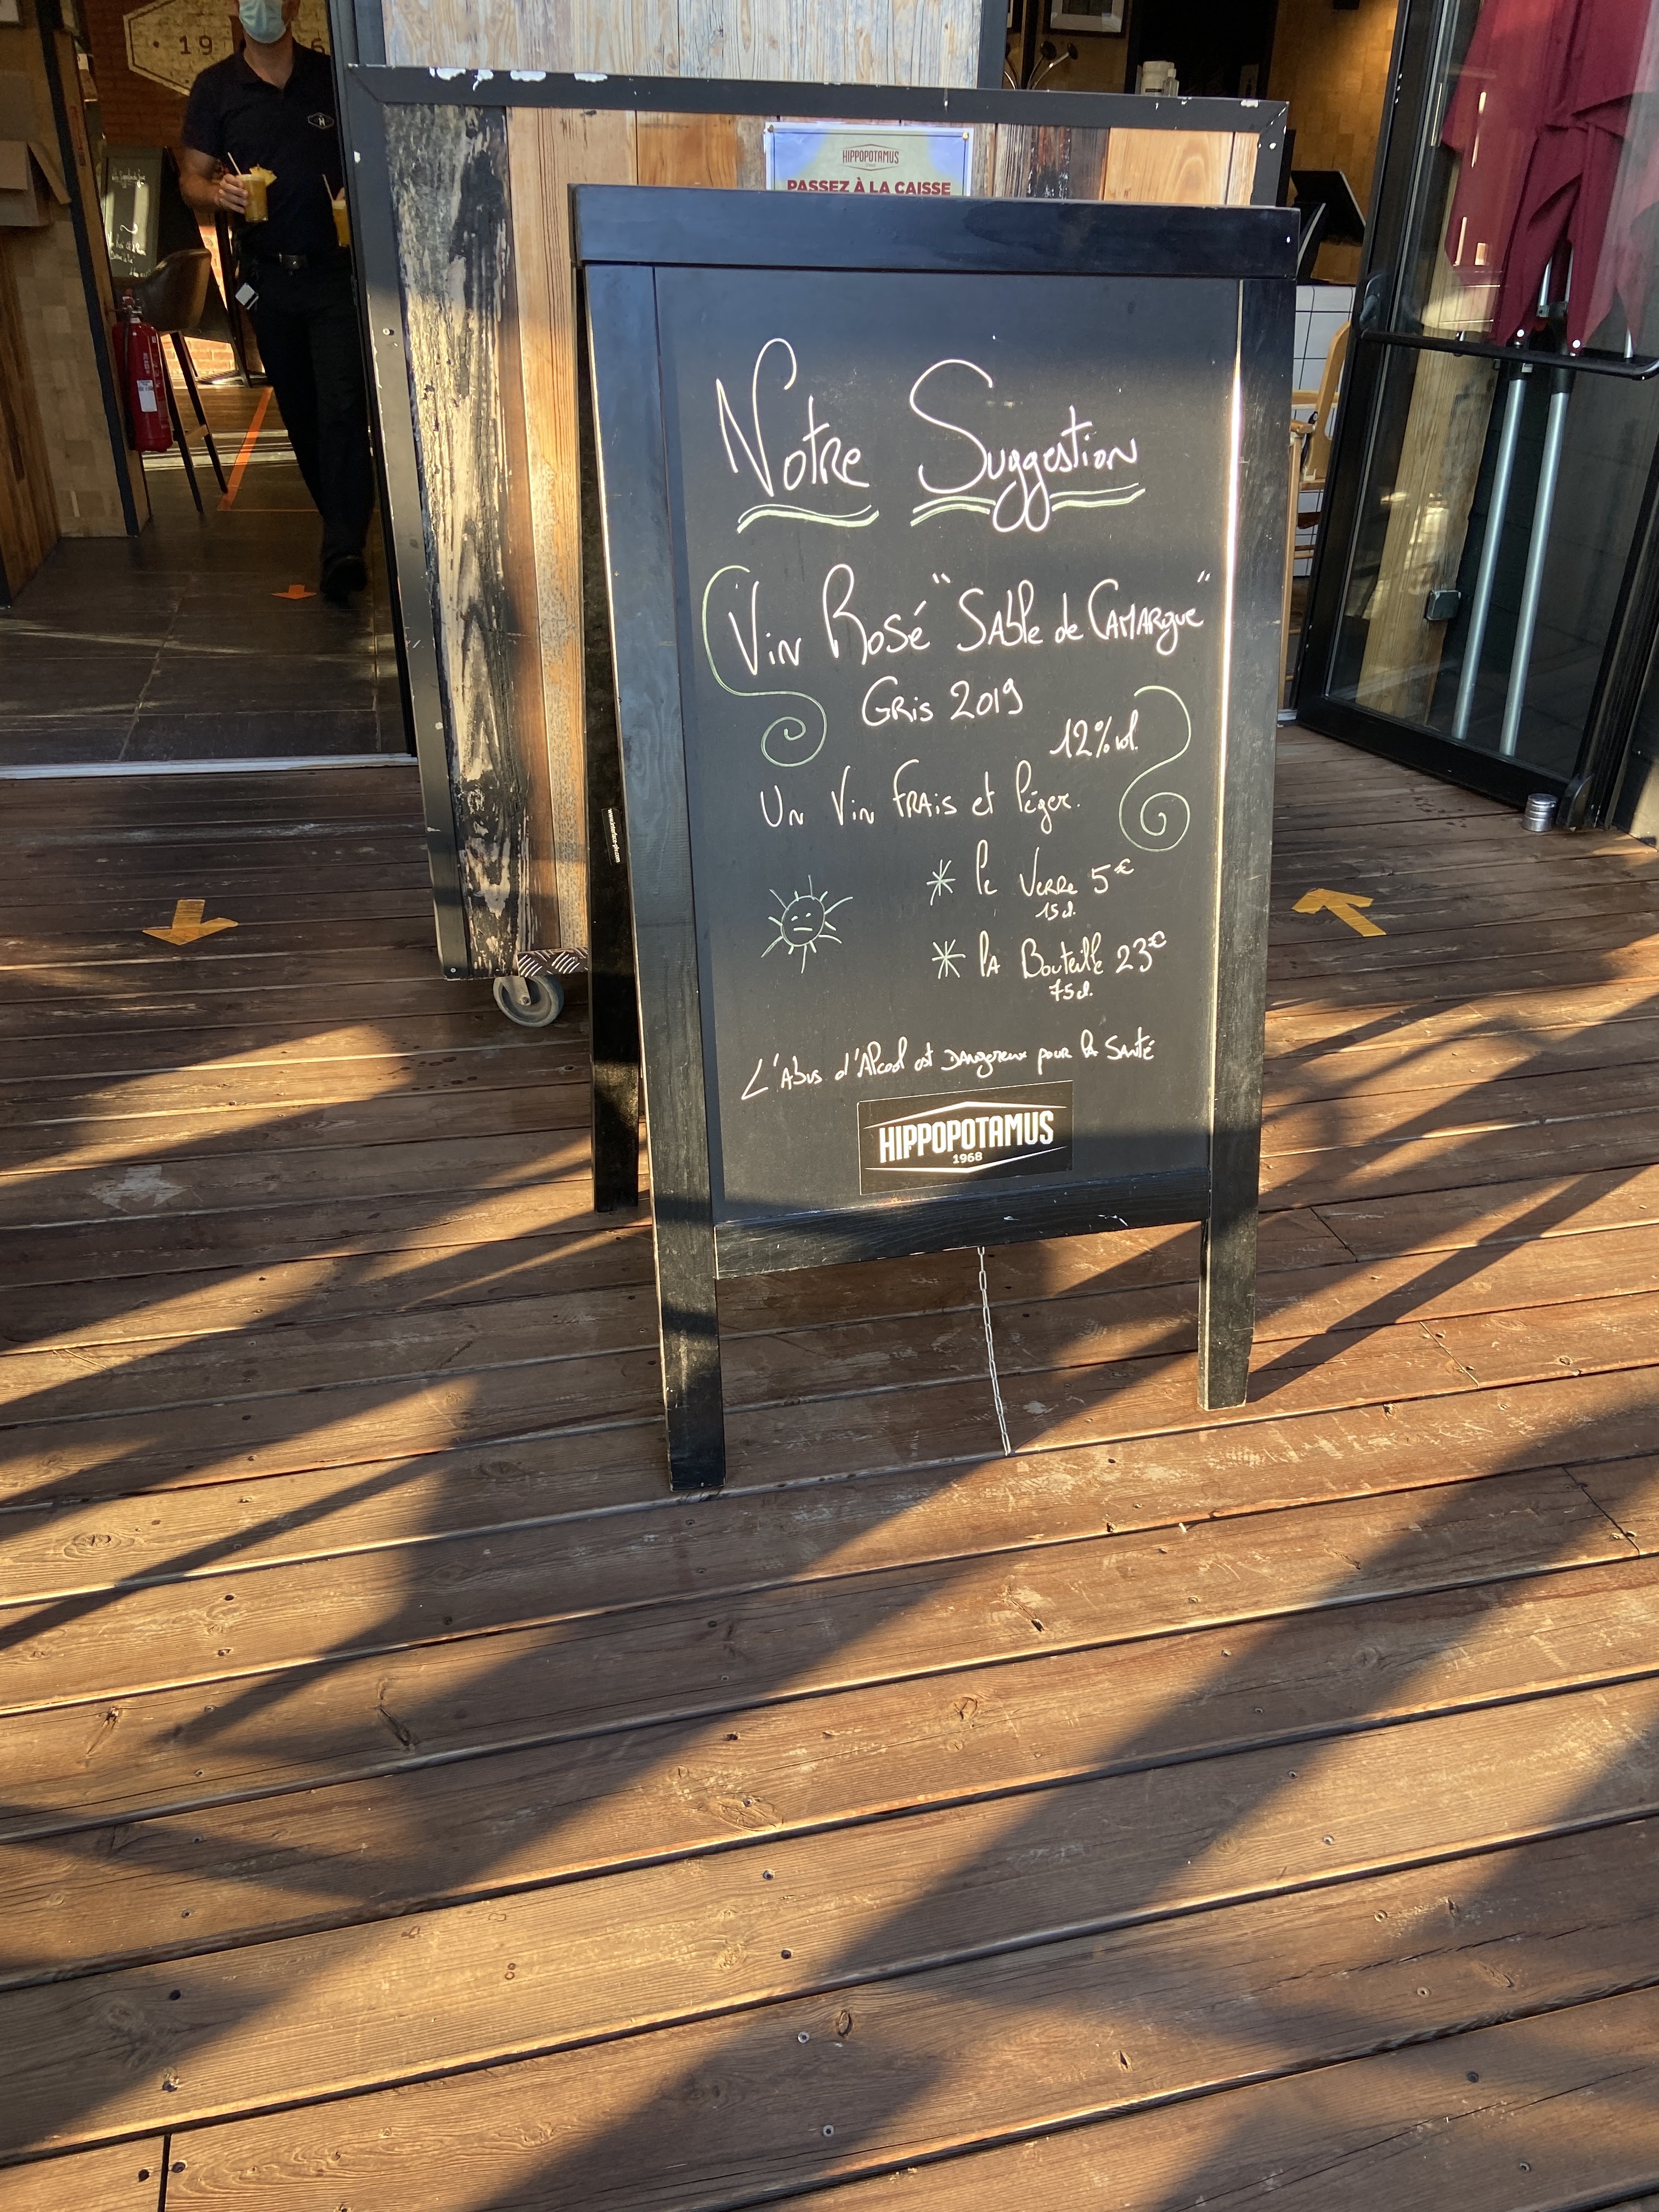 19 6
HIPPOPOTAMUS
PASSEZ À LA CAISSE
Notre Suggestion
Vin Rosé "Sable de Camargue"
Gris 2019
12% vol.
Un Vin Frais et léger.
* le Verre 5€
15cl.
* la Bouteille 23€
75cl.
L'Abus d'Alcool est Dangereux pour la Santé
HIPPOPOTAMUS
1968